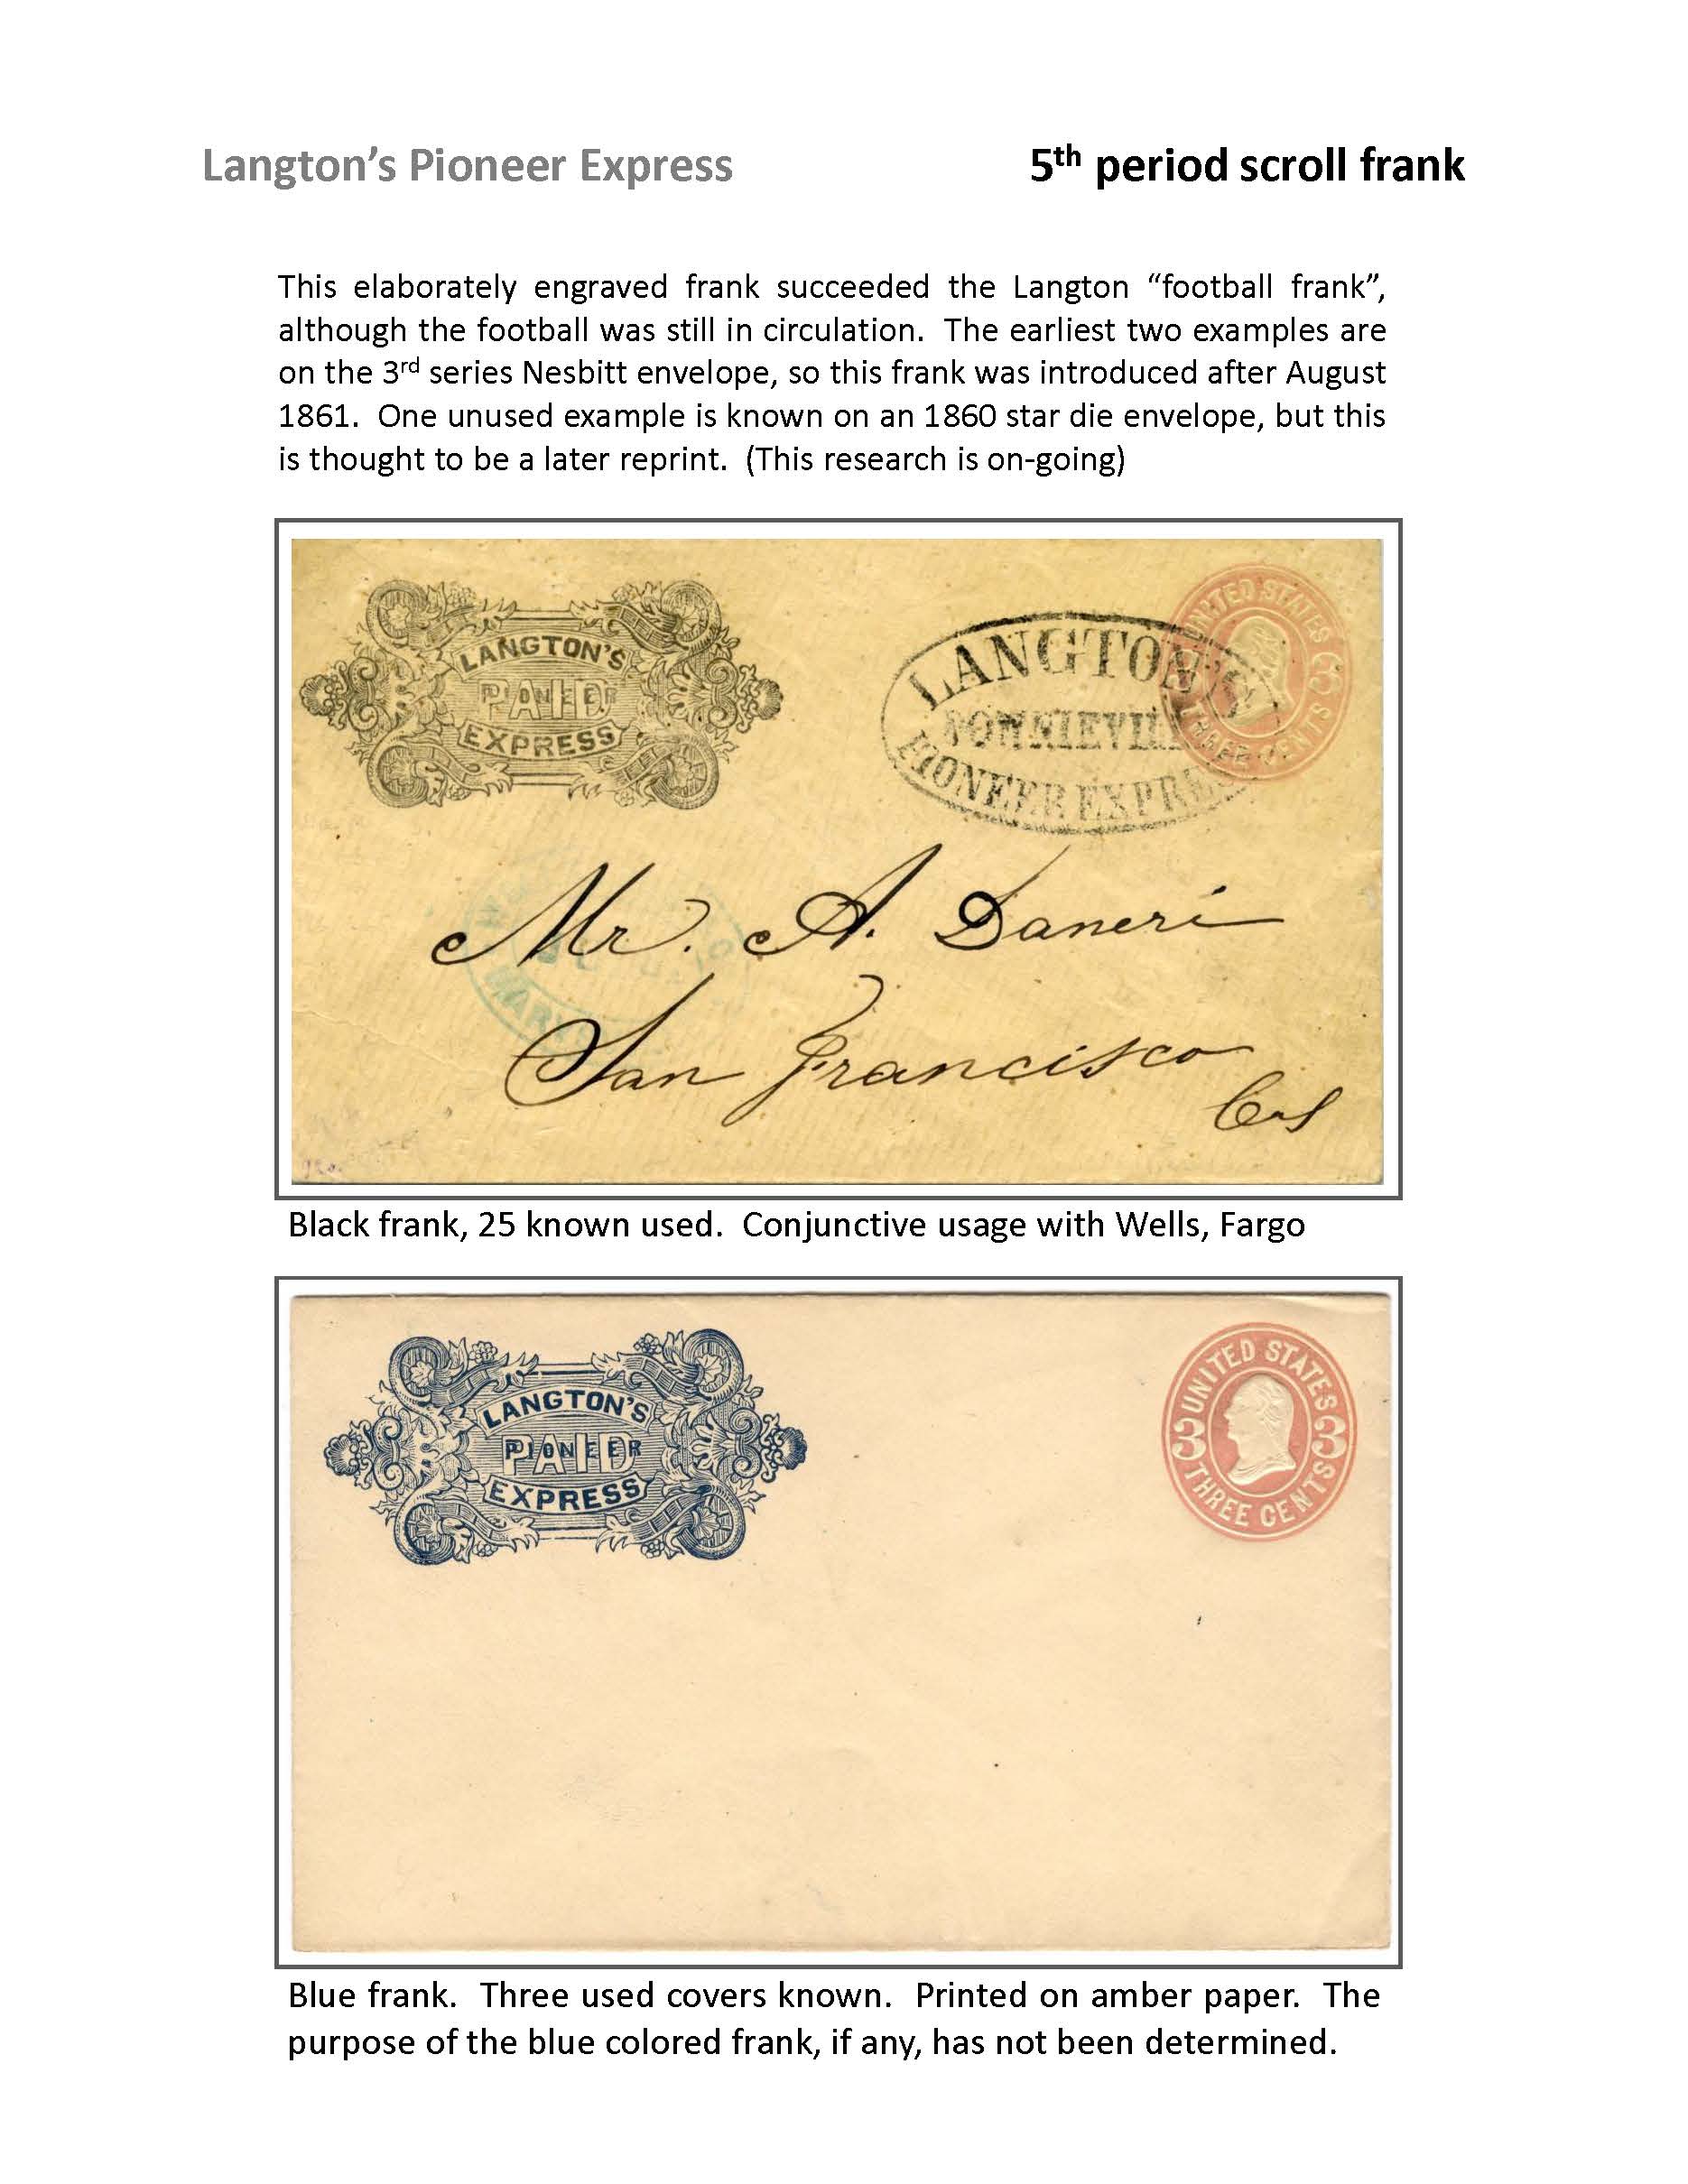 Langton’s Pioneer Express
5th period scroll frank
This elaborately engraved frank succeeded the Langton “football frank”,
although the football was still in circulation. The earliest two examples are
on the 3rd series Nesbitt envelope, so this frank was introduced after August
1861. One unused example is known on an 1860 star die envelope, but this
is thought to be a later reprint. (This research is on-going)
LANGTON'S
PIONEER
PAID
EXPRESS
LANGTON'S
PIONEER EXPRE
UNITED STATES
3 3
THREE CENTS
Mr. A. Daneri
San Francisco
Cal
Black frank, 25 known used. Conjunctive usage with Wells, Fargo
LANGTON'S
PIONEER
PAID
EXPRESS
UNITED STATES
3 3
THREE CENTS
Blue frank. Three used covers known. Printed on amber paper. The
purpose of the blue colored frank, if any, has not been determined.